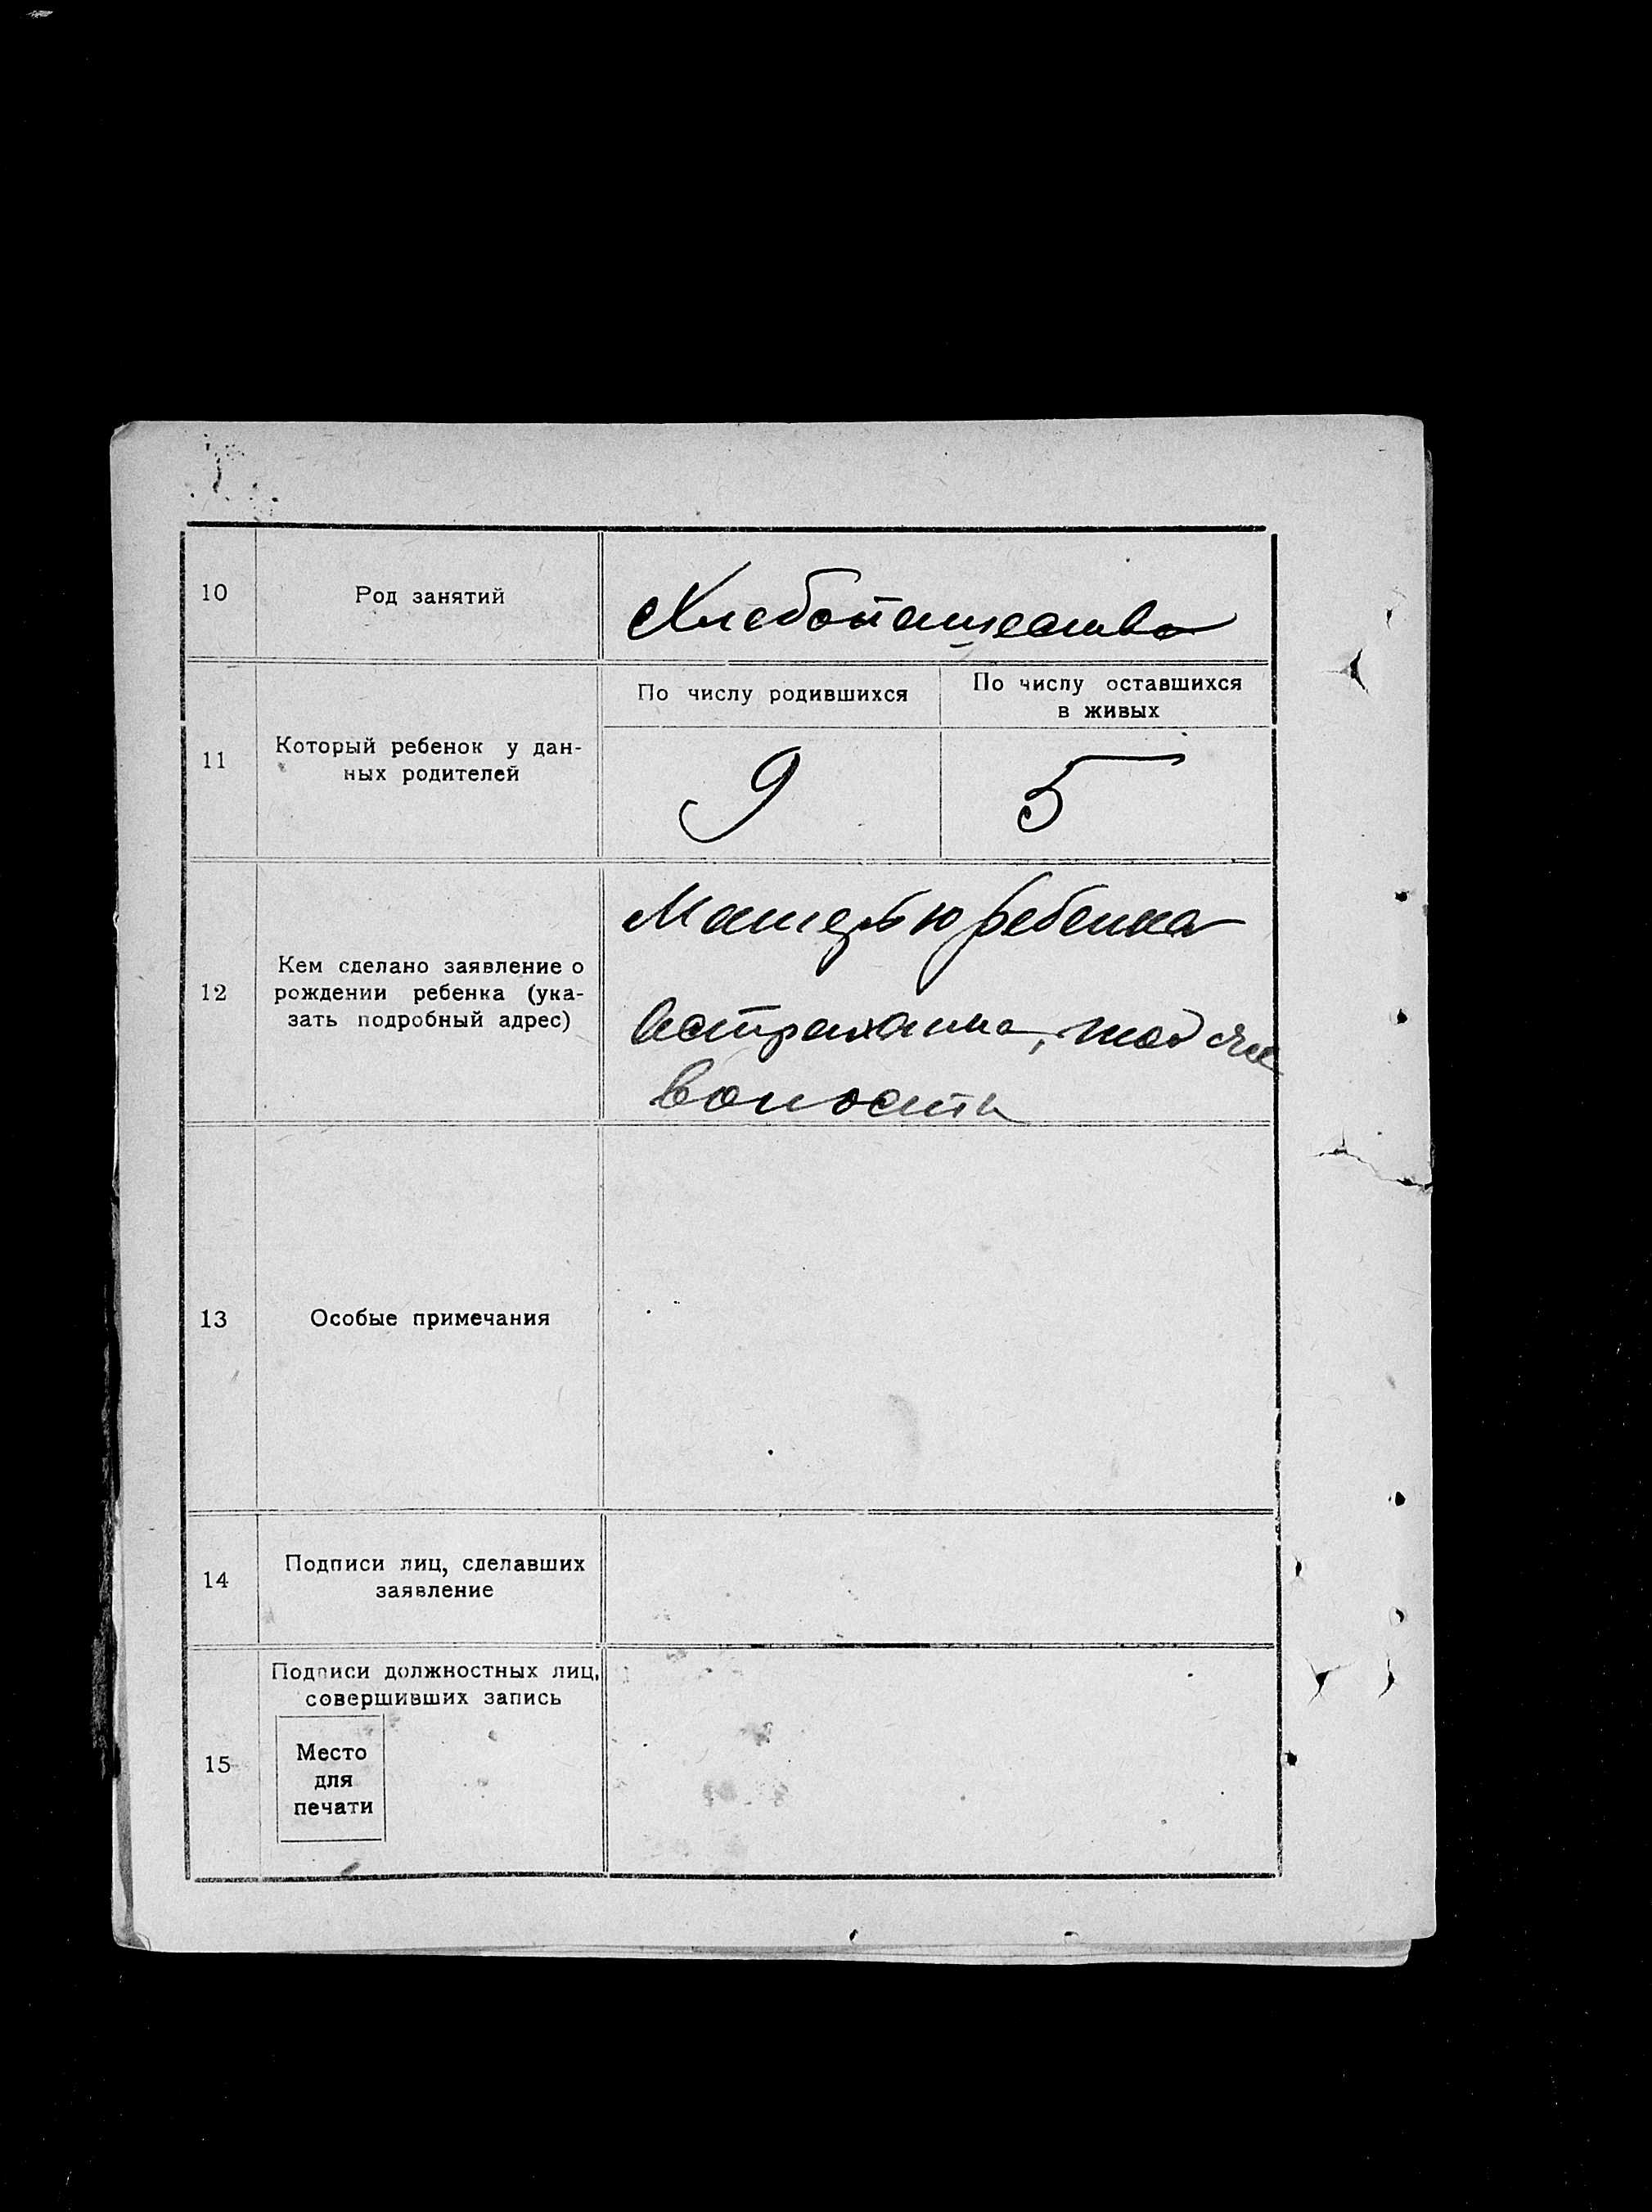 10
Род занятий
Хлебопашество
11
Который ребенок у дан-
ных родителей
По числу родившихся
По числу оставшихся
в живых
9
5
12
Кем сделано заявление о
рождении ребенка (ука-
зать подробный адрес)
Матерью ребенка
Астраханка, той же
волости
13
Особые примечания
14
Подписи лиц, сделавших
заявление
15
Подписи должностных лиц,
совершивших запись
Место
для
печати